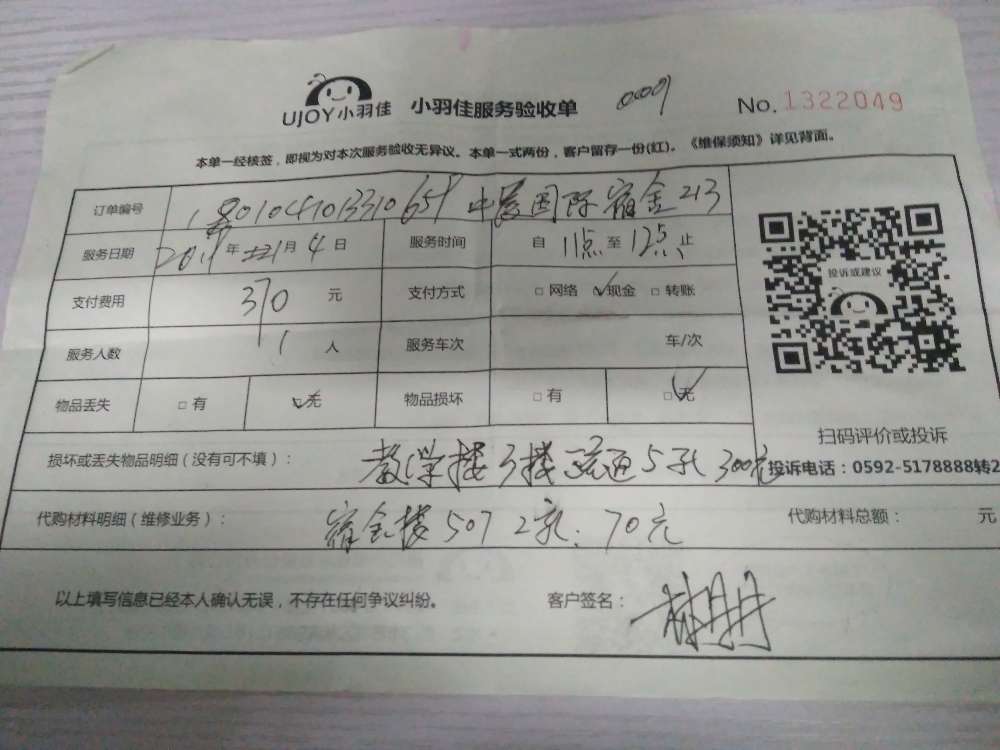 UJOY小羽佳 小羽佳服务验收单 0009 No. 1322049
本单一经核签，即视为对本次服务验收无异议。本单一式两份，客户留存一份(红)。《维保须知》详见背面。
订单编号 国际宿舍213
服务日期 年 月 4 日 服务时间 自 11点 至 12点 止
支付费用 370 元 支付方式 □ 网络 ☑现金 □ 转账
服务人数 1 人 服务车次 车/次
物品丢失 □ 有 ☑无 物品损坏 □ 有 ☑无
投诉或建议
扫码评价或投诉
损坏或丢失物品明细（没有可不填）： 教学楼3楼疏通5孔300元
投诉电话：0592-5178888转2
代购材料明细（维修业务）： 宿舍楼507 2孔：70元 代购材料总额： 元
以上填写信息已经本人确认无误，不存在任何争议纠纷。 客户签名：